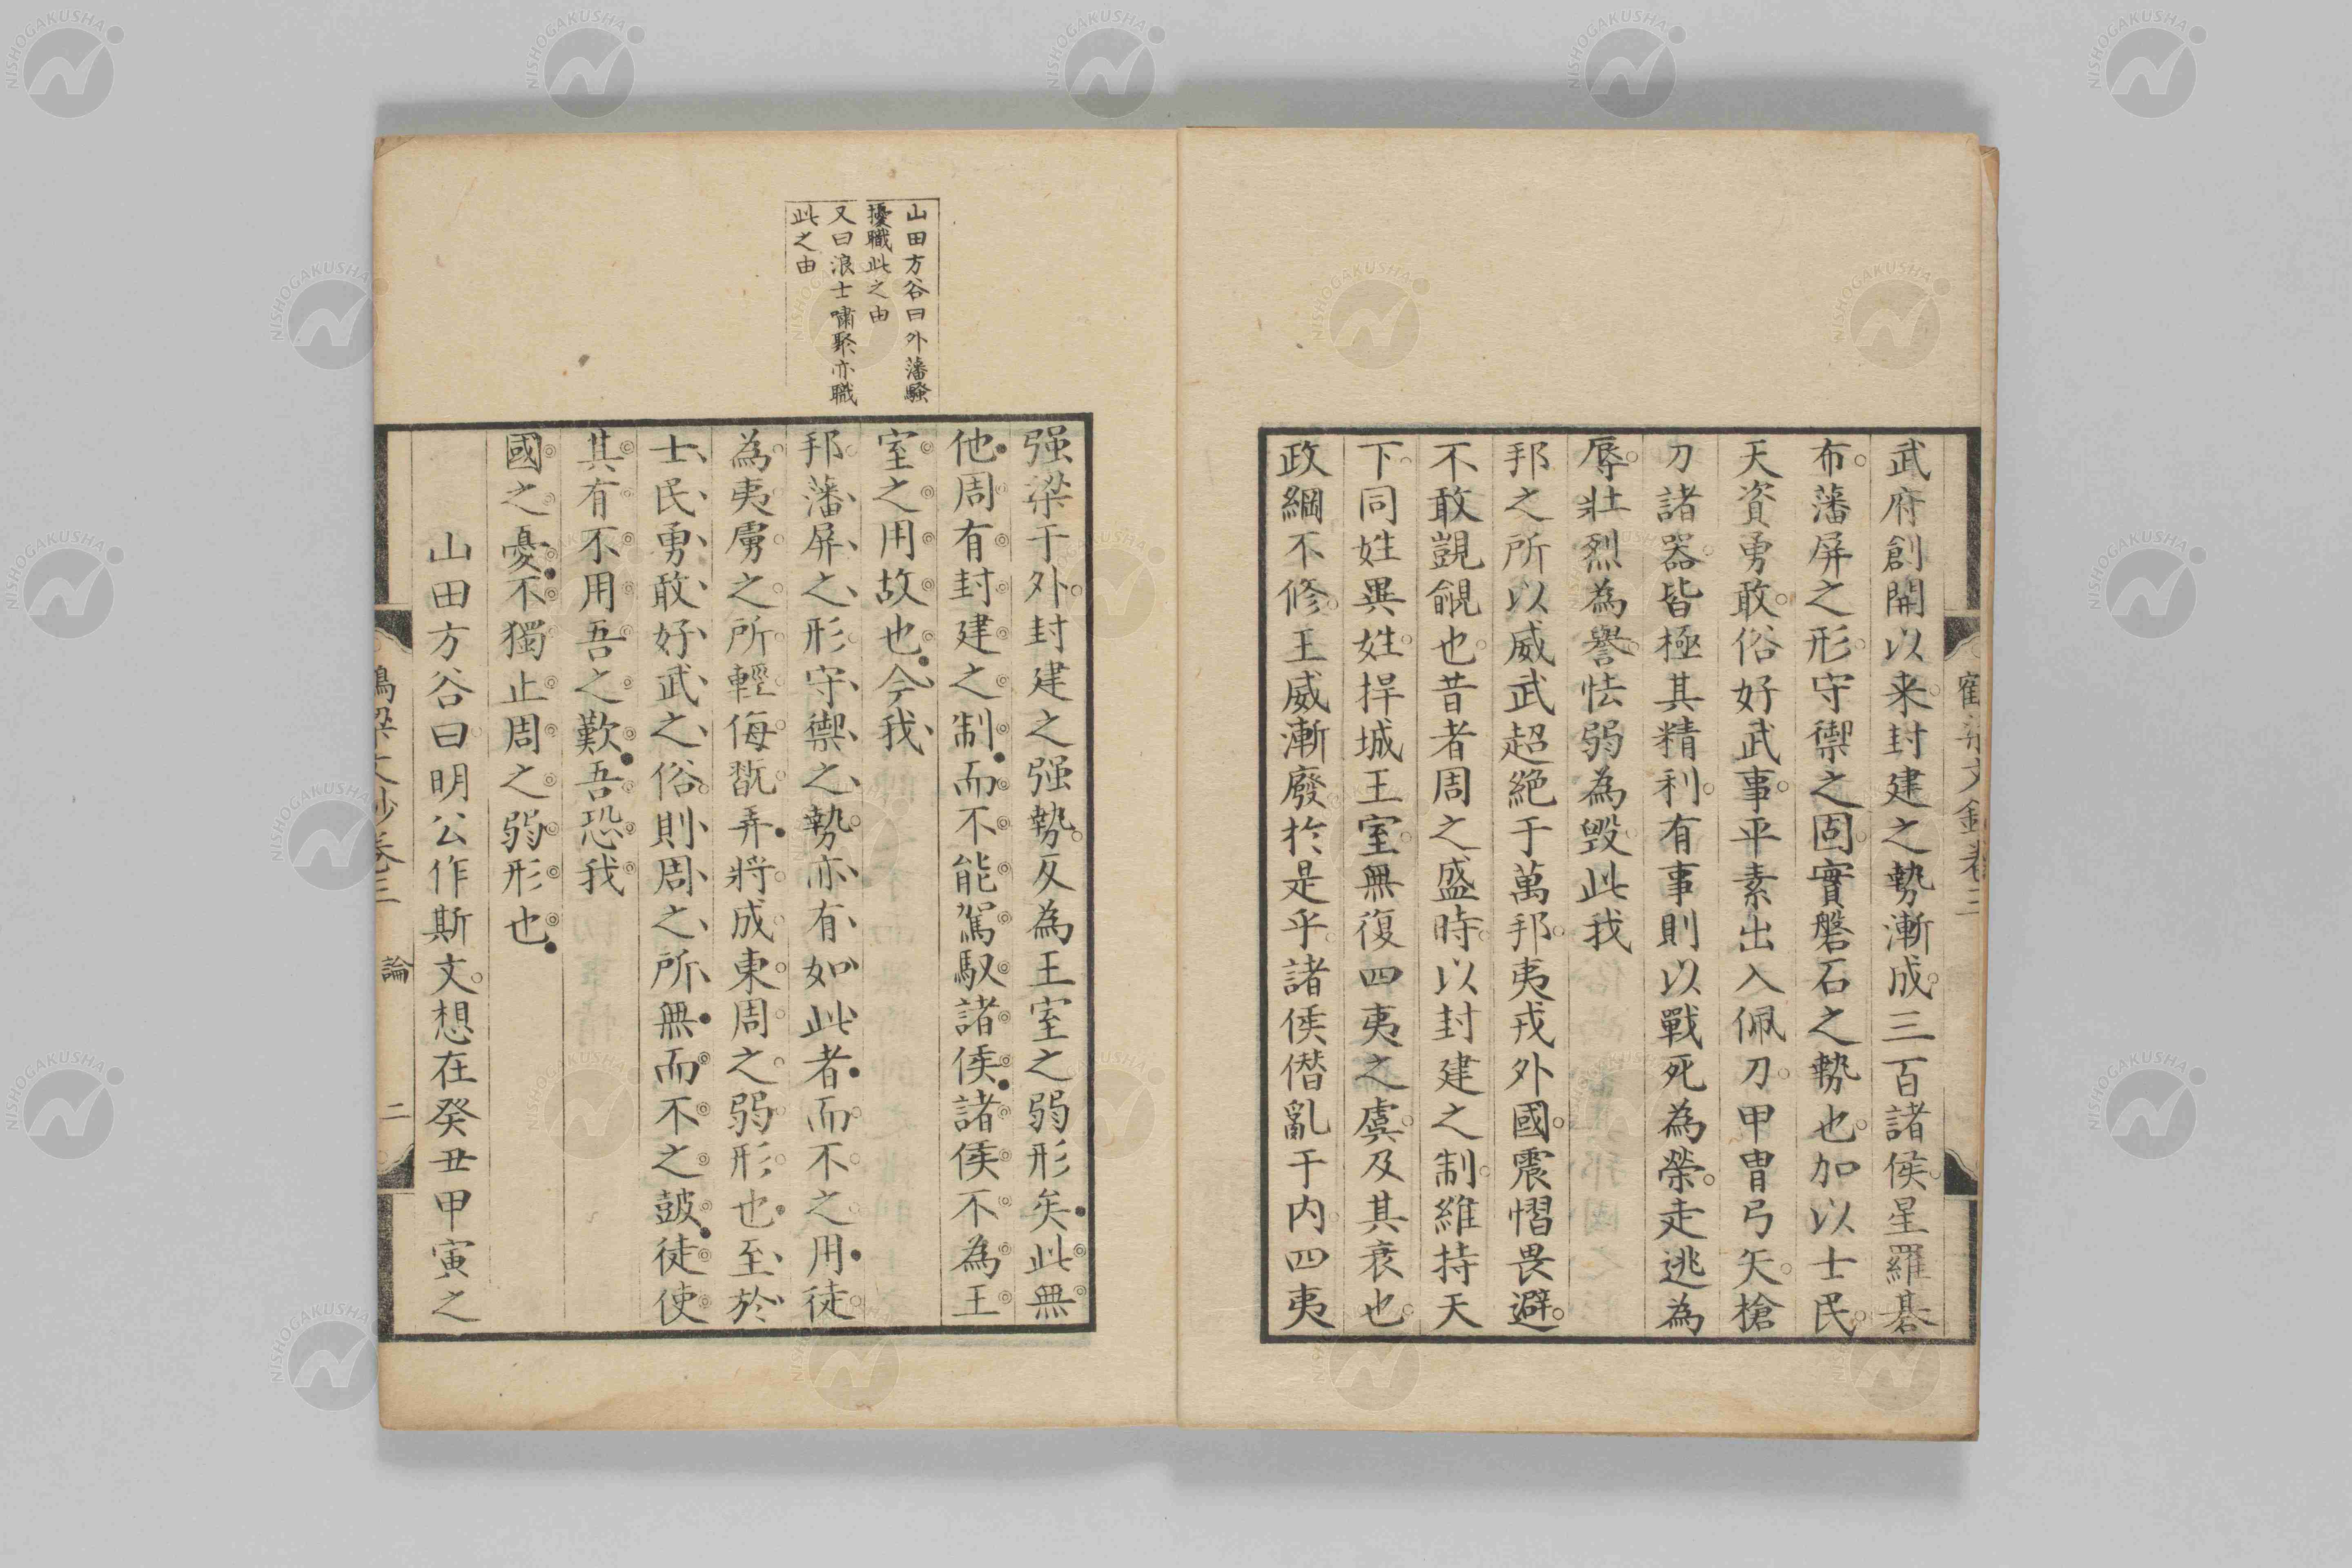 武府創開以来封建之勢漸成三百諸侯星羅碁
布藩屏之形守禦之固實磐石之勢也加以士民
天資勇敢俗好武事平素出入佩刀甲冑弓矢槍
刀諸器皆極其精利有事則以戰死為榮走逃為
辱壯烈為譽怯弱為毀此我
邦之所以威武超絶于萬邦夷戎外國震慴畏避
不敢覬覦也昔者周之盛時以封建之制維持天
下同姓異姓捍城王室無復四夷之虞及其衰也
政綱不修王威漸廢於是乎諸侯僭亂于内四夷
山田方谷曰外藩騷
擾職此之由
又曰浪士嘯聚亦職
此之由
强梁于外封建之强勢反為王室之弱形矣此無
他周有封建之制而不能駕馭諸侯諸侯不為王
室之用故也今我
邦藩屏之形守禦之勢亦有如此者而不之用徒
為夷虜之所輕侮翫弄將成東周之弱形也至於
士民勇敢好武之俗則周之所無而不之鼓徒使
其有不用吾之歎吾恐我
國之憂不獨止周之弱形也
山田方谷曰明公作斯文想在癸丑甲寅之
文鈔卷三 論 二
NISHOGAKUSHA